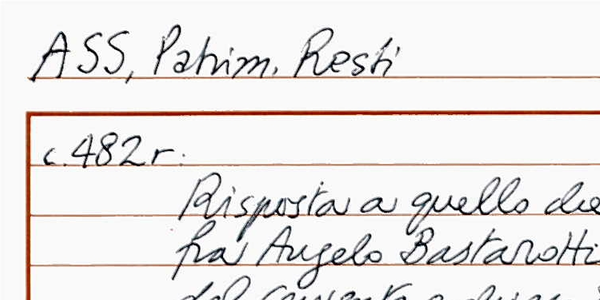 ASS, Patrim. Resti
c. 482r:
Risposta a quello che
fra Angelo Bastarotti
del